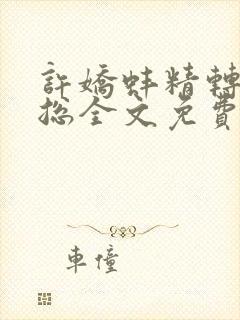 許嬌蚌精轉
捴全文免費
車憧